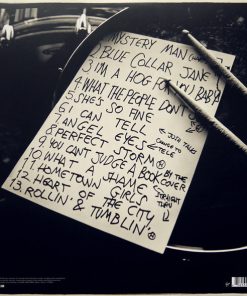 1. MYSTERY MAN
2. BLUE COLLAR JANE
3. I'M A HOG FOR YOU BABY
4. WHAT THE PEOPLE DON'T
5. SHE'S SO FINE
6. I CAN TELL
7. ANGEL EYES
8. PERFECT STORM
9. YOU CAN'T JUDGE A BOOK BY THE COVER
10. WHAT A SHAME
11. HOMETOWN GIRLS
12. HEART OF THE CITY
13. ROLLIN' & TUMBLIN'
CHANGE TO TELE
STRAIGHT